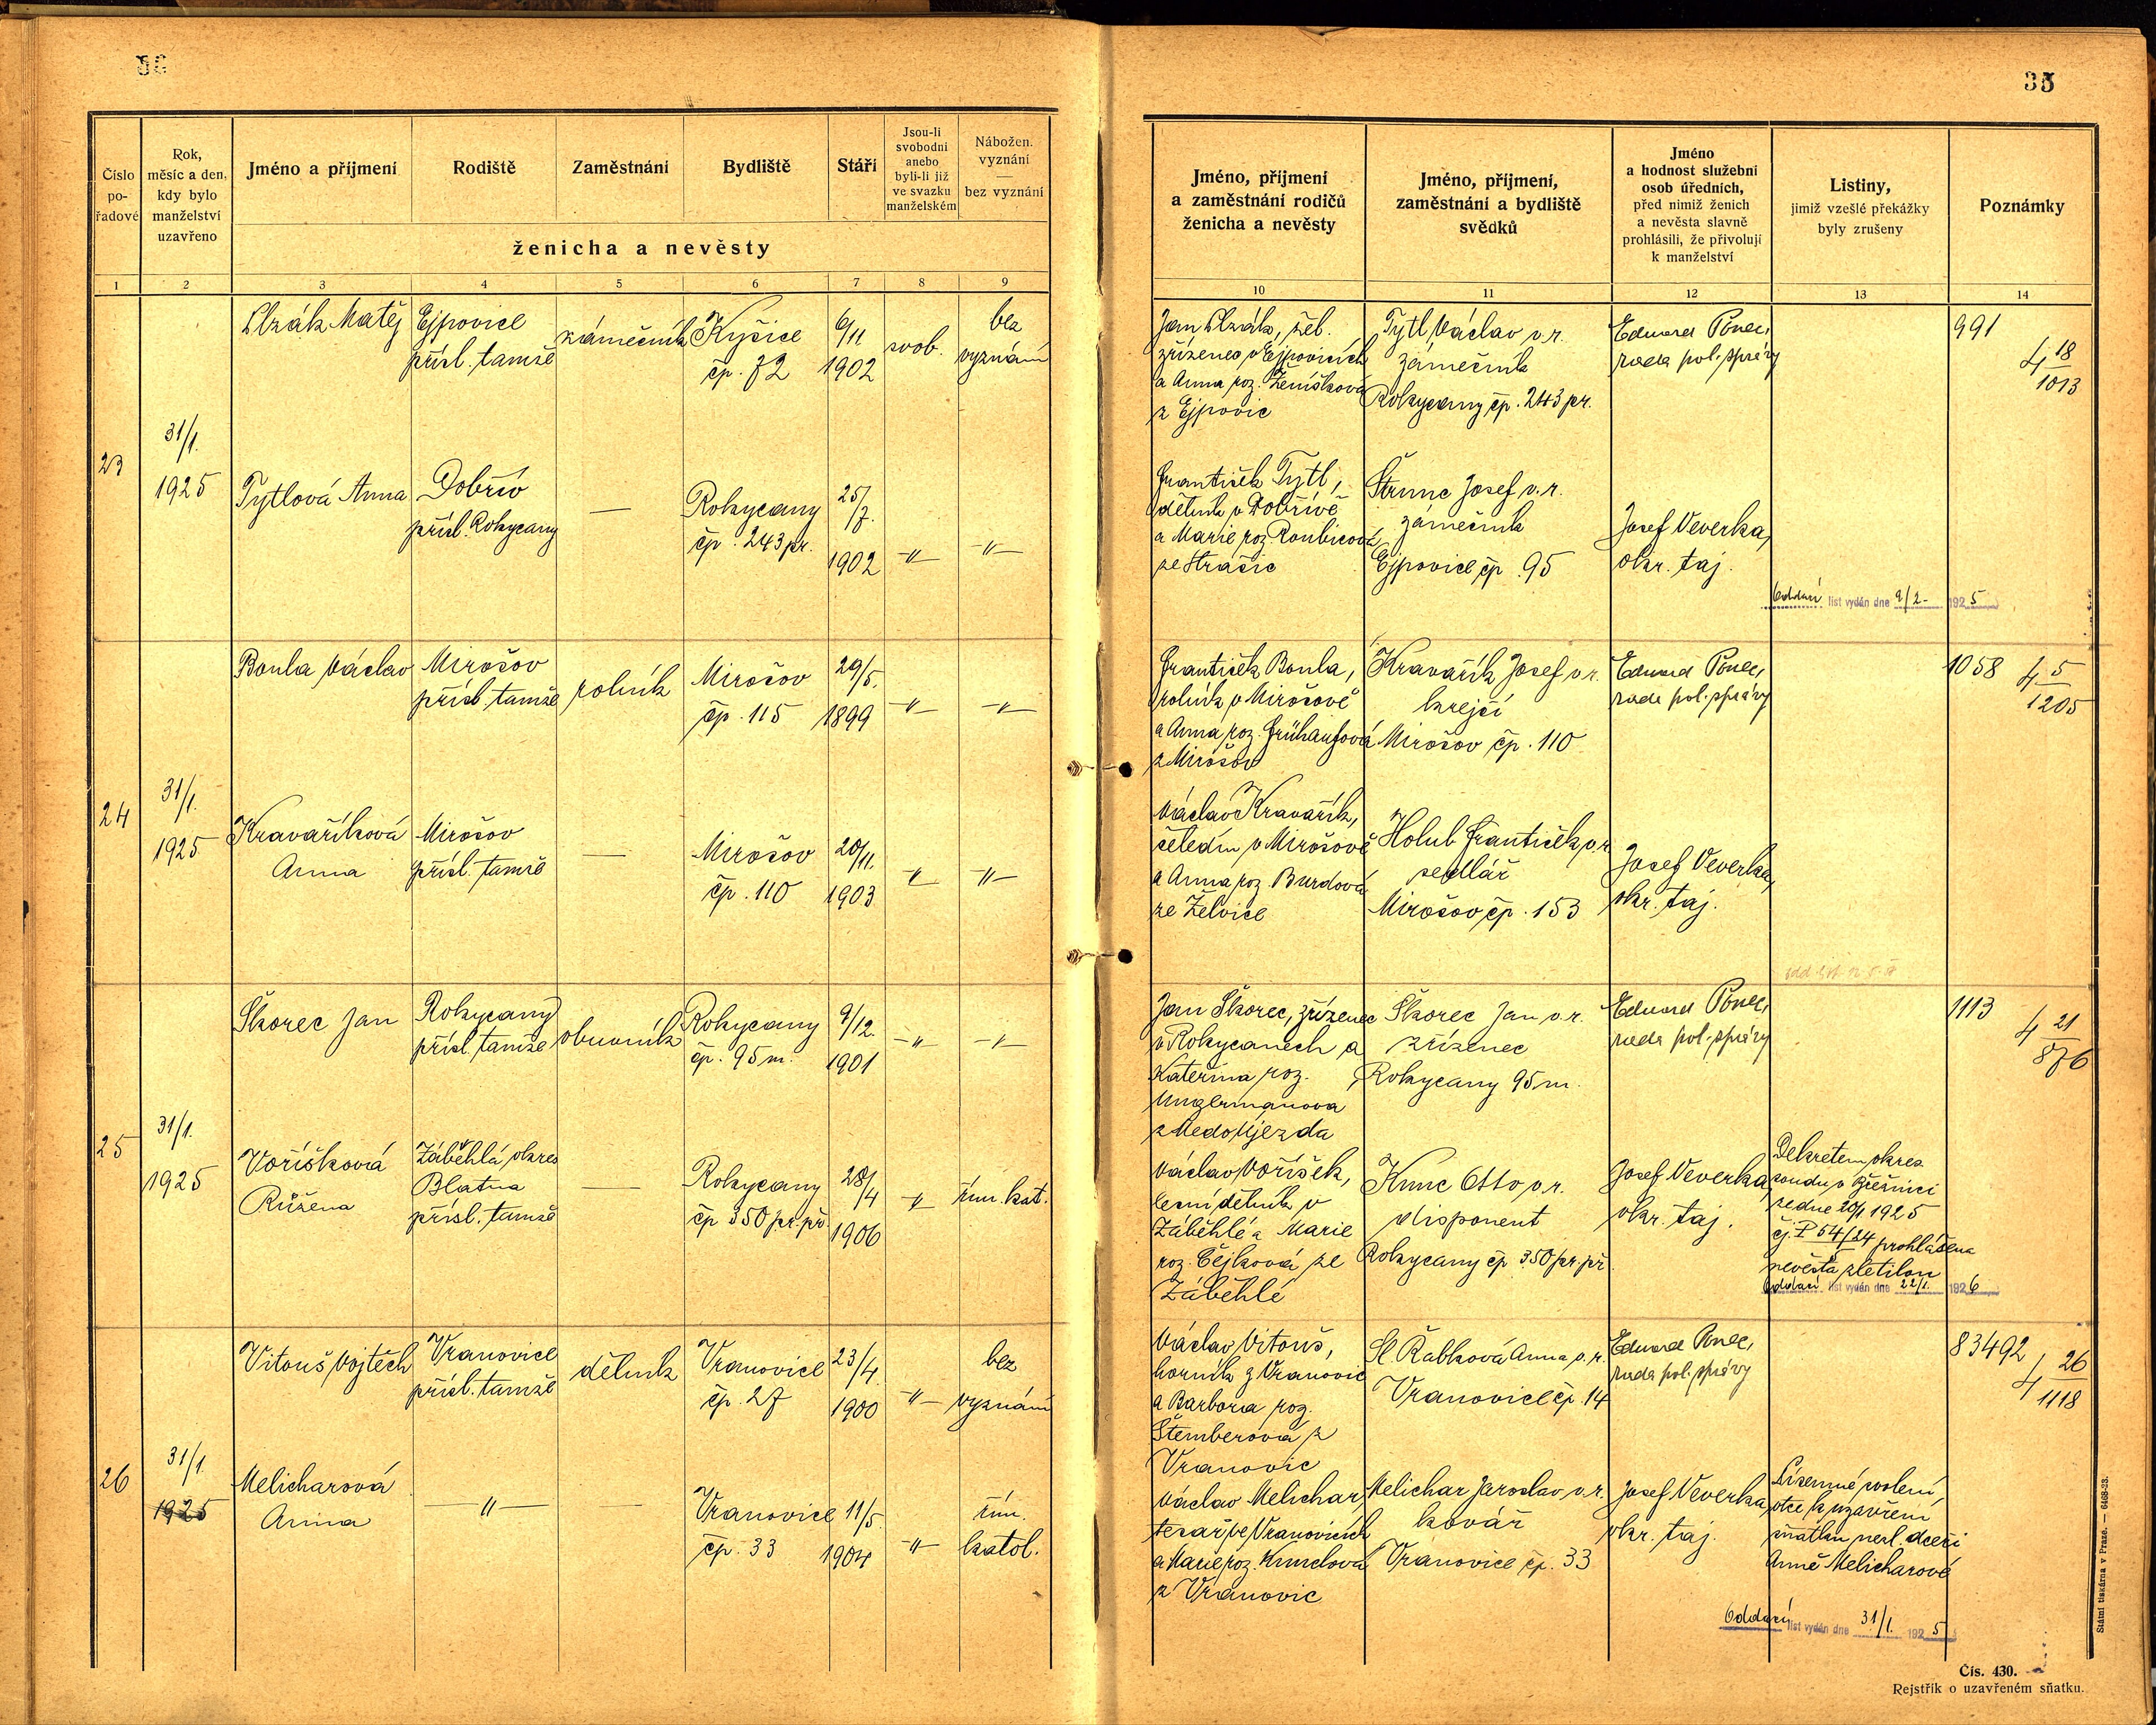 36
Číslo po-řadové
Rok, měsíc a den, kdy bylo manželství uzavřeno
Jméno a příjmení
Rodiště
Zaměstnání
Bydliště
Stáří
Jsou-li svobodni anebo byli-li již ve svazku manželském
Nábožen. vyznání — bez vyznání
ženicha a nevěsty
1 2 3 4 5 6 7 8 9
Matěj
Ejpovice
přísl. tamže
zámečník
Kyšice
čp. 72
6/11
1902
svob.
bez
vyznání
23
31/1.
1925
Tytlová Anna
Dobřív
přísl. Rokycany
—
Rokycany
čp. 243 pr.
25/7.
1902
-"-
-"-
Boula Václav
Mirošov
přísl. tamže
rolník
Mirošov
čp. 115
29/5.
1899
-"-
-"-
24
31/1.
1925
Kravaříková
Anna
Mirošov
přísl. tamže
—
Mirošov
čp. 110
20/11.
1903
-"-
-"-
Škorec Jan
Rokycany
přísl. tamže
obuvník
Rokycany
čp. 95 m.
9/12.
1901
-"-
-"-
25
31/1.
1925
Voříšková
Růžena
Záběhlá okres
Blatna
přísl. tamže
—
Rokycany
čp 350 pr. př.
28/4
1906
-"-
řím. kat.
Vitouš Vojtěch
Vranovice
přísl. tamže
dělník
Vranovice
čp. 27
23/4.
1900
-"-
bez
vyznání
26
31/1.
1925
Melicharová
Anna
-"-
—
Vranovice
čp. 33
11/5.
1904
-"-
řím.
katol.
35
Jméno, příjmení
a zaměstnání rodičů
ženicha a nevěsty
Jméno, příjmení,
zaměstnání a bydliště
svědků
Jméno
a hodnost služební
osob úředních,
před nimiž ženich
a nevěsta slavně
prohlásili, že přivolují
k manželství
Listiny,
jimiž vzešlé překážky
byly zrušeny
Poznámky
10 11 12 13 14
Jan
zřízenec v Ejpovicích
a Anna roz. Ženíšková
z Ejpovic
Tytl Václav v.r.
zámečník
Rokycany čp. 243 pr.
Eduard Ponec,
rada pol. správy
991
4 18/1013
František Tytl,
dělník v Dobřívě
a Marie roz. Roubicová
ze Strašic
Štrunc Josef v.r.
zámečník
Ejpovice čp. 95
Josef Veverka,
okr. taj.
Oddací list vydán dne 9/2 - 1925
František Boula,
rolník v Mirošově
a Anna roz. Frühaufová
z Mirošov
Kravařík Josef v.r.
krejčí
Mirošov čp. 110
Eduard Ponec,
rada pol. správy
1058
4 5/1205
Václav Kravařík,
čeledín v Mirošově
a Anna roz. Burdová
ze Želvice
Holub František v.r.
sedlář
Mirošov čp. 153
Josef Veverka,
okr. taj.
Jan Škorec, zřízenec
v Rokycanech a
Kateřina roz.
Ungermanova
z Medo Újezda
Škorec Jan v.r.
zřízenec
Rokycany 95 m.
Eduard Ponec,
rada pol. správy
1113
4 21/876
Václav Voříšek,
lesní dělník v
Záběhlé a Marie
roz. Čejková ze
Záběhlé
Kunc Otto v.r.
disponent
Rokycany čp 350 pr. př.
Josef Veverka,
okr. taj.
Dekretem okres.
soudu v Březnici
ze dne 20/1 1925
čj. P 54/24 prohlášena
nevěsta zletilou
Oddací list vydán dne 22/1. 1926
Václav Vitouš,
horník z Vranovic
a Barbora roz.
Štemberová z
Vranovic
Sl. Řabková Anna v.r.
Vranovice čp. 14
Eduard Ponec,
rada pol. správy
83492
4 26/1118
Václav Melichar,
tesař ve Vranovicích
a Marie roz.
z Vranovic
Melichar Jaroslav v.r.
kovář
Vranovice čp. 33
Josef Veverka,
okr. taj.
Písemné svolení
otce k uzavření
sňatku nezl. dceři
Anně Melicharové
Oddací list vydán dne 31/1. 1925
Státní tiskárna v Praze. — 6468-23.
Čís. 430.
Rejstřík o uzavřeném sňatku.